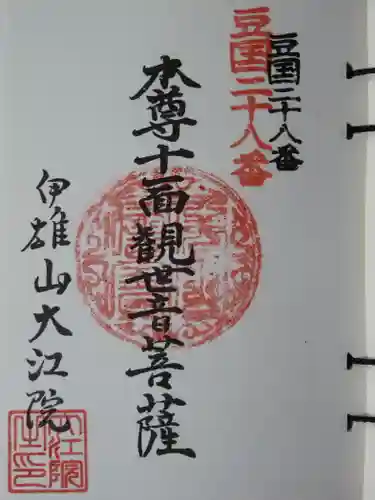 豆国二十八番
豆国二十八番
本尊十一面観世音菩薩
伊雄山大江院